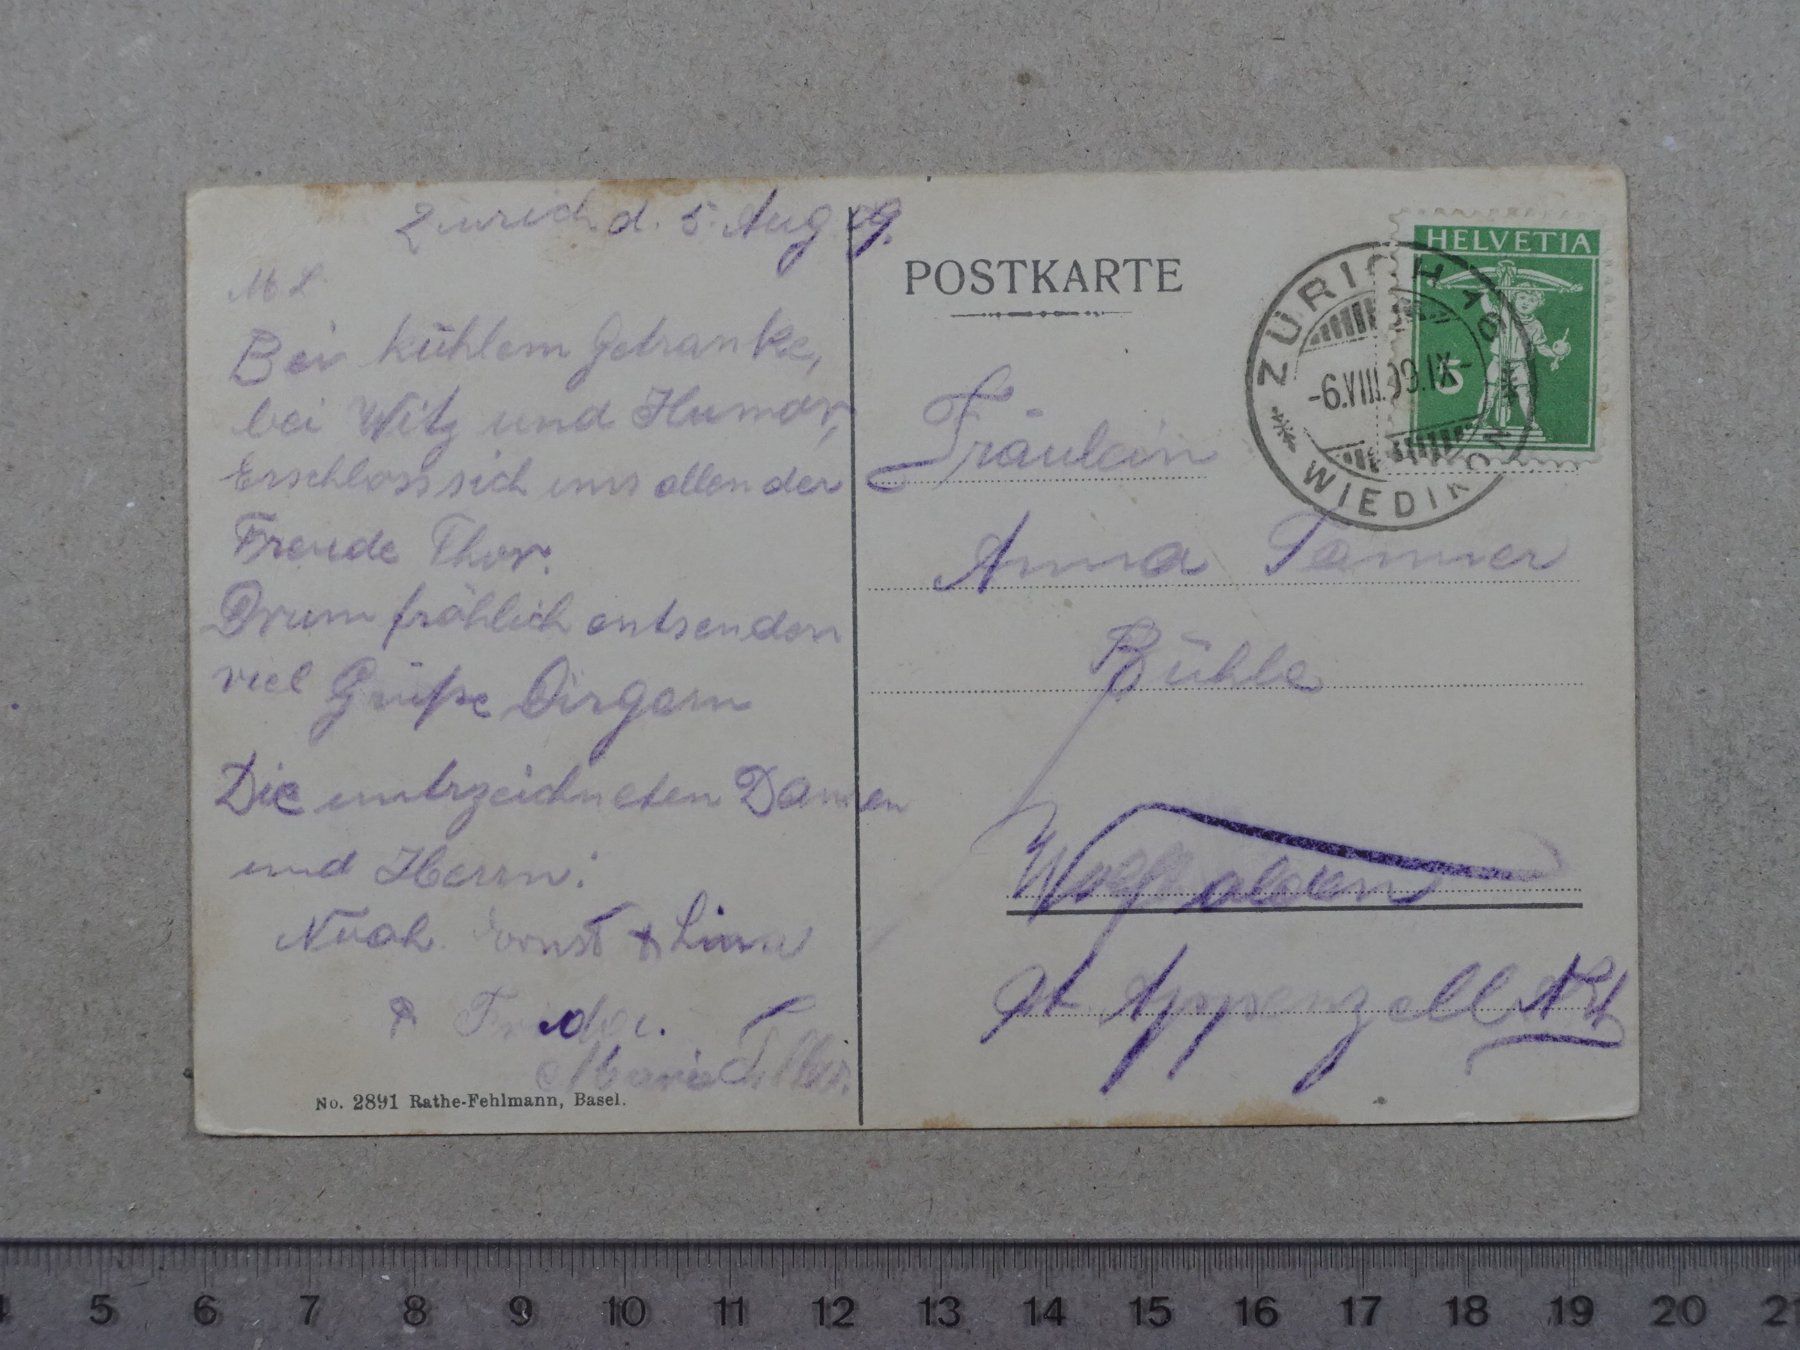 Zürich d. 5. Aug 09.
M L
Bei kühlem Getranke,
bei Witz und Humor,
Erschloss sich uns allen der
Freude Thor.
Drum fröhlich entsenden
viel Grüße Dir gern
Die unterzeichneten Damen
und Herrn:
Ernst & Lina
& Frieda.
Marie
No. 2891 Rathe-Fehlmann, Basel.
POSTKARTE
HELVETIA
5
ZÜRICH 16
-6.VIII.09.IX-
WIEDIKON
Fräulein
Anna Tanner
Bühle
Wolfhalden
Kt. Appenzell A. Rh
4 5 6 7 8 9 10 11 12 13 14 15 16 17 18 19 20 21